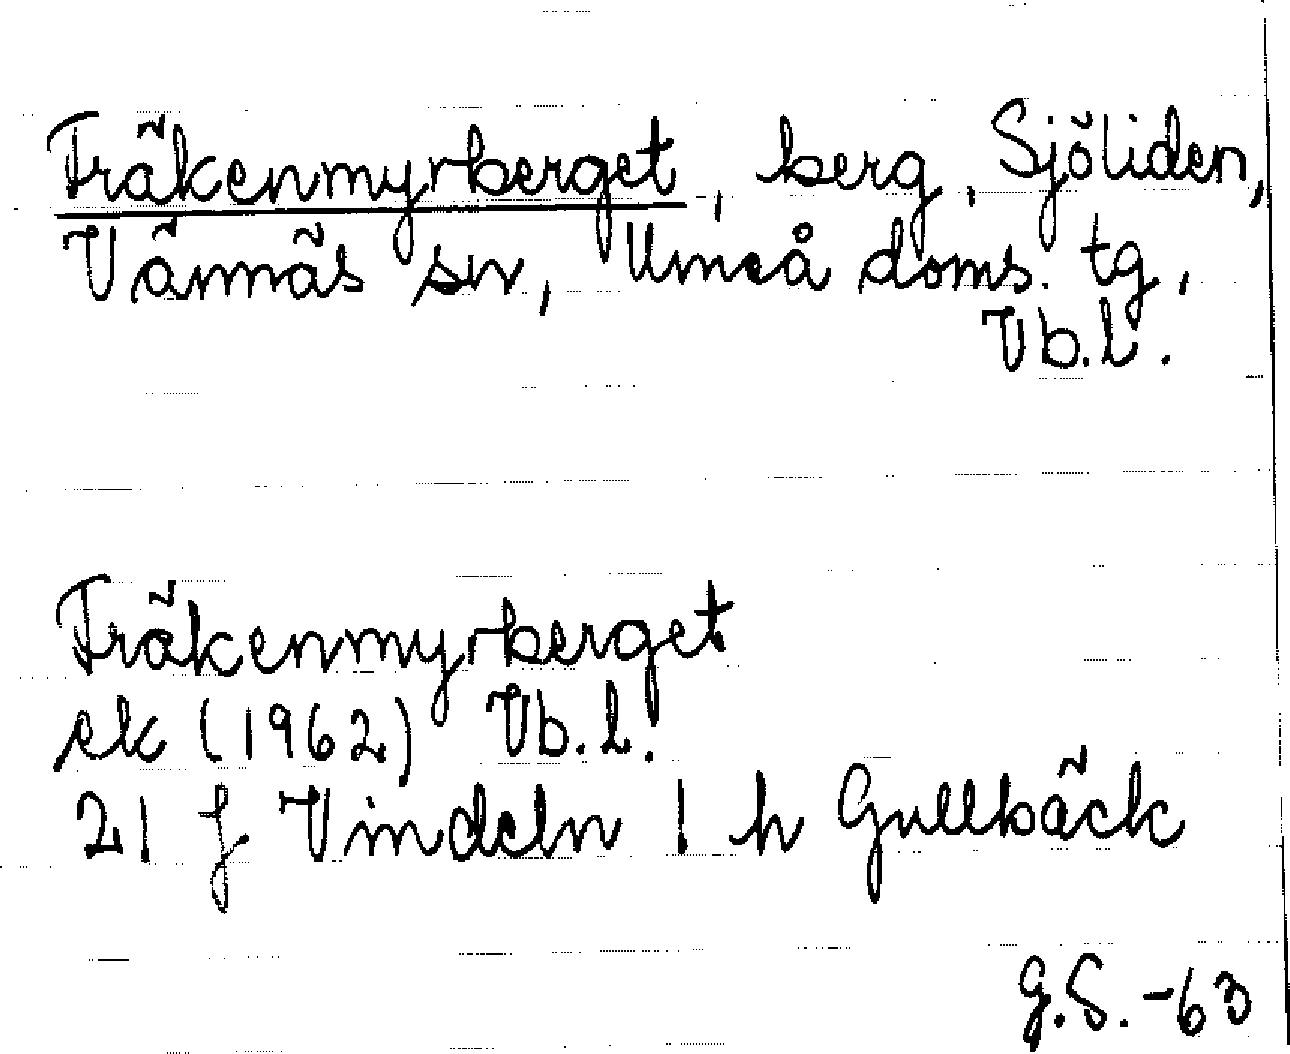 Fräkenmyrberget, berg, Sjöliden,
Vännäs sn, Umeå doms. tg,
Vb.l.
Fräkenmyrberget
ek (1962) Vb.l.
21 f Vindeln 1 h Gullbäck
G.S. -63